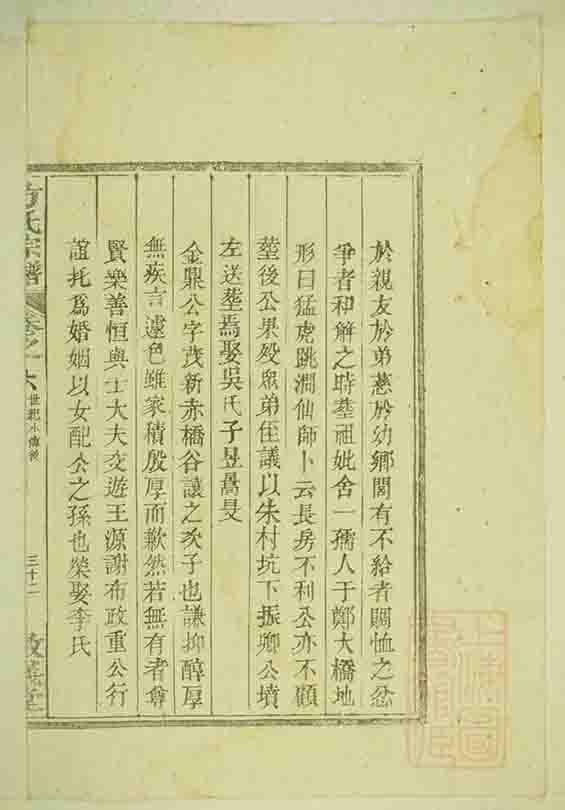 於親友於弟慈於幼鄉閭有不給者賙恤之忿
爭者和解之時塟祖妣舍一孺人于鄭大橋地
形曰猛虎跳澗仙師卜云長房不利公亦不顧
塟後公果歿眾弟侄議以朱村坑下振卿公墳
左送塟焉娶吳氏子昱暠旻
金鼎公字茂新赤橋谷讓之次子也謙抑醇厚
無疾言遽色雖家積殷厚而歉然若無有者尊
賢樂善恒與士大夫交遊王源謝布政重公行
誼托爲婚姻以女配公之孫也榮娶李氏
方氏宗譜
卷之一
世紀小傳後
三十二
敦善堂
上海圖書館藏